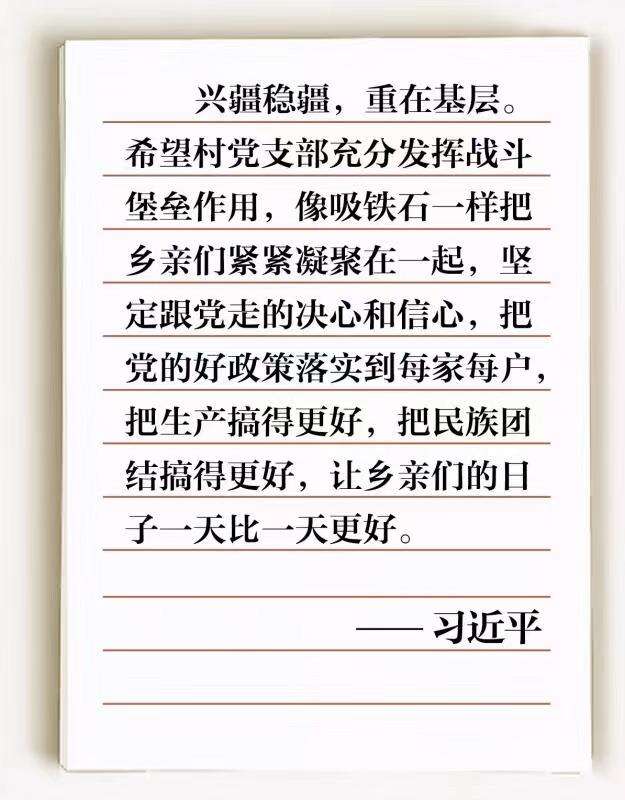 兴疆稳疆，重在基层。
希望村党支部充分发挥战斗
堡垒作用，像吸铁石一样把
乡亲们紧紧凝聚在一起，坚
定跟党走的决心和信心，把
党的好政策落实到每家每户，
把生产搞得更好，把民族团
结搞得更好，让乡亲们的日
子一天比一天更好。
—— 习近平